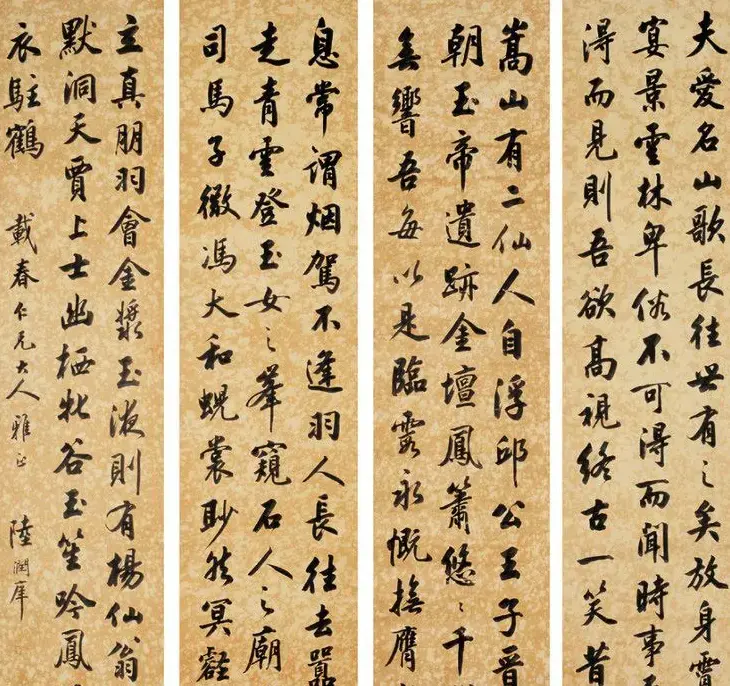 夫愛名山歌長往世有之矣放身霄
宴景雲林卑俗不可得而聞時事
得而見則吾欲高視終古一笑昔
嵩山有二仙人自浮邱公王子晉
朝玉帝遺跡金壇鳳簫悠〻千
無響吾每以是臨霞永慨撫膺
息常謂烟駕不逢羽人長往去囂
走青雲登玉女之峯窺石人之廟
司馬子微馮大和蜺裳眇然冥壑
立真朋羽會金漿玉液則有楊仙翁
默洞天賈上士幽栖牝谷玉笙吟鳳
衣駐鶴
載春仁兄大人雅正
陸潤庠